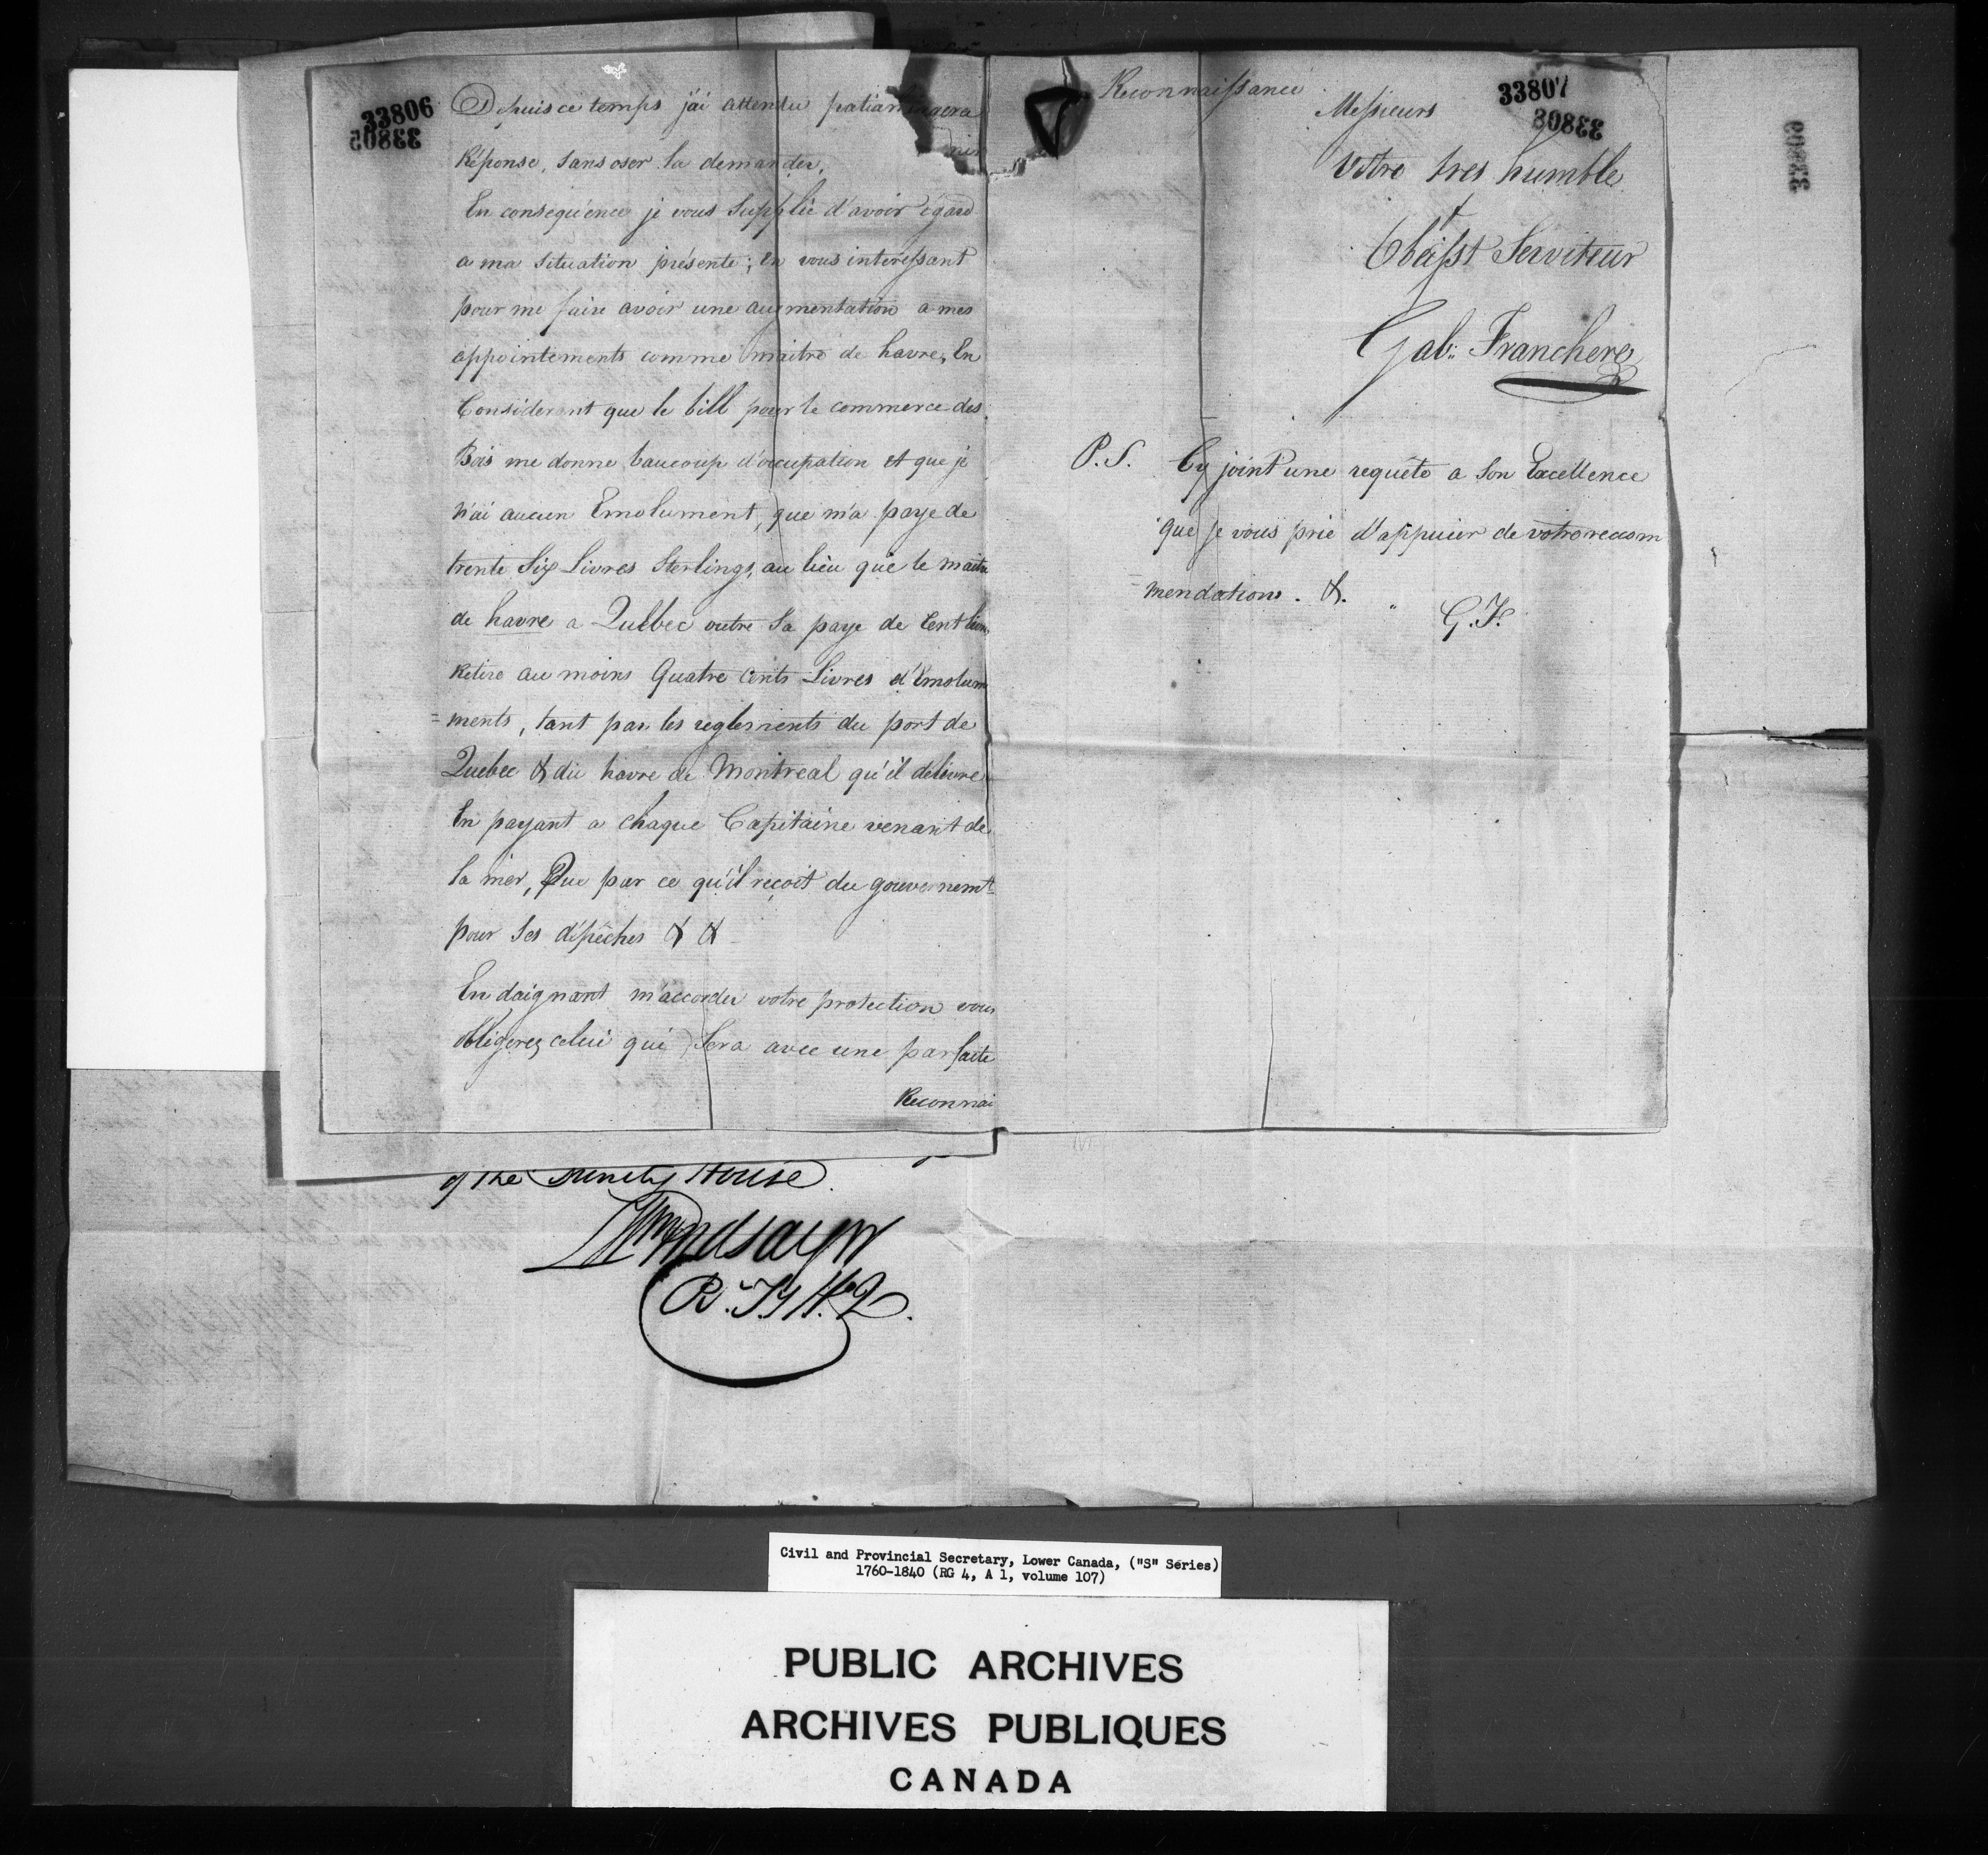 33806
33805
Depuis ce temps j'ai attendu
Réponse, sans oser la demander.
En conséquence je vous Supplie d'avoir égard
a ma situation présente; en vous intéressant
pour me faire avoir une augmentation a mes
appointements comme maitre de havre, En
Considerant que le bill pour le commerce des
Bois me donne baucoup d'occupation et que je
n'ai aucun Emolument, que m'a paye de
trente Six Livres Sterlings, au lieu que le maitre
de havre a Quebec outre Sa paye de Cent livres
Retire au moins Quatre Cents Livres d'Emolum
=ments, tant par les reglements du port de
Quebec & du havre de Montreal qu'il délivre
En payant a chaque Capitaine venant de
la mer, Que par ce qu'il reçoit du gouvernemt
pour Ses dépêches & &
En daignant m'accorder votre protection vous
obligerez celui qui Sera avec une parfaite
Reconnai
Reconnaissance
33807
33808
Messieurs
Votre tres humble
&
Obéisst Serviteur
Gab:: Franchere
P.S. Cy joint une requête a Son Excellence
que je vous prie d'appuier de votre recom
=mendation. &.
G.F.
33809
of the Trinity House
Wm Lindsay Jr
R. T. H. Q.
Civil and Provincial Secretary, Lower Canada, ("S" Series)
1760-1840 (RG 4, A 1, volume 107)
PUBLIC ARCHIVES
ARCHIVES PUBLIQUES
CANADA